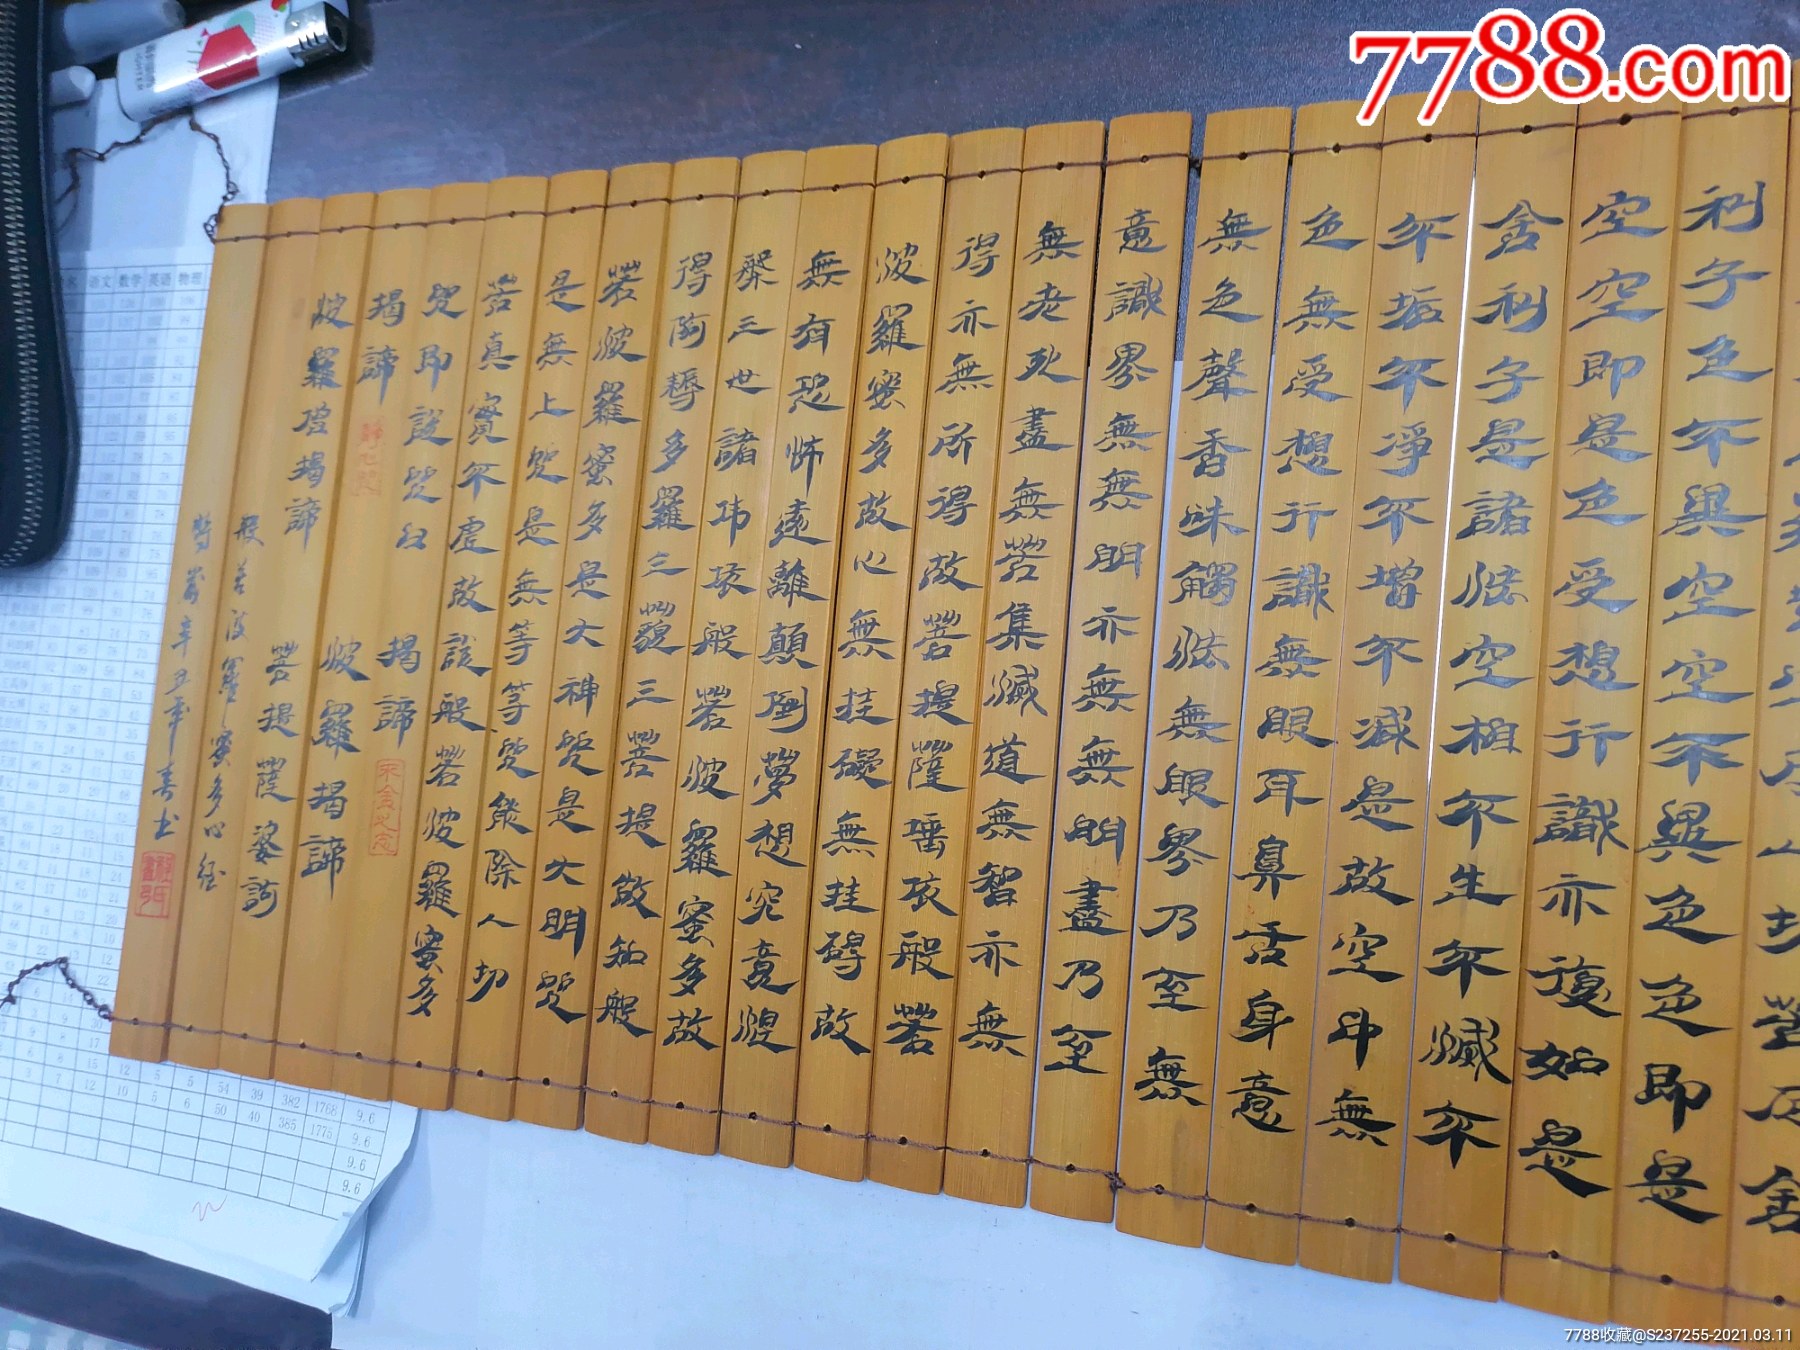 7788.com
利子色不異空空不異色色即是
空空即是色受想行識亦復如是
舍利子是諸法空相不生不滅不
不垢不淨不增不減是故空中無
色無受想行識無眼耳鼻舌身意
無色聲香味觸法無眼界乃至無
意識界無無明亦無無明盡乃至
無老死盡無苦集滅道無智亦無
得亦無所得故菩提薩埵依般若
波羅蜜多故心無挂礙無挂碍故
無有恐怖遠離顛倒夢想究竟涅
槃三世諸佛依般若波羅蜜多故
得阿耨多羅三藐三菩提故知般
若波羅蜜多是大神咒是大明咒
是無上咒是無等等咒能除一切
苦真實不虛故說般若波羅蜜多
咒即說咒曰 揭諦
揭諦 波羅揭諦
波羅僧揭諦 菩提薩婆訶
般若波羅蜜多心经
歲辛丑年春书
语文 数学 英语 物理
7788收藏@S237255-2021.03.11